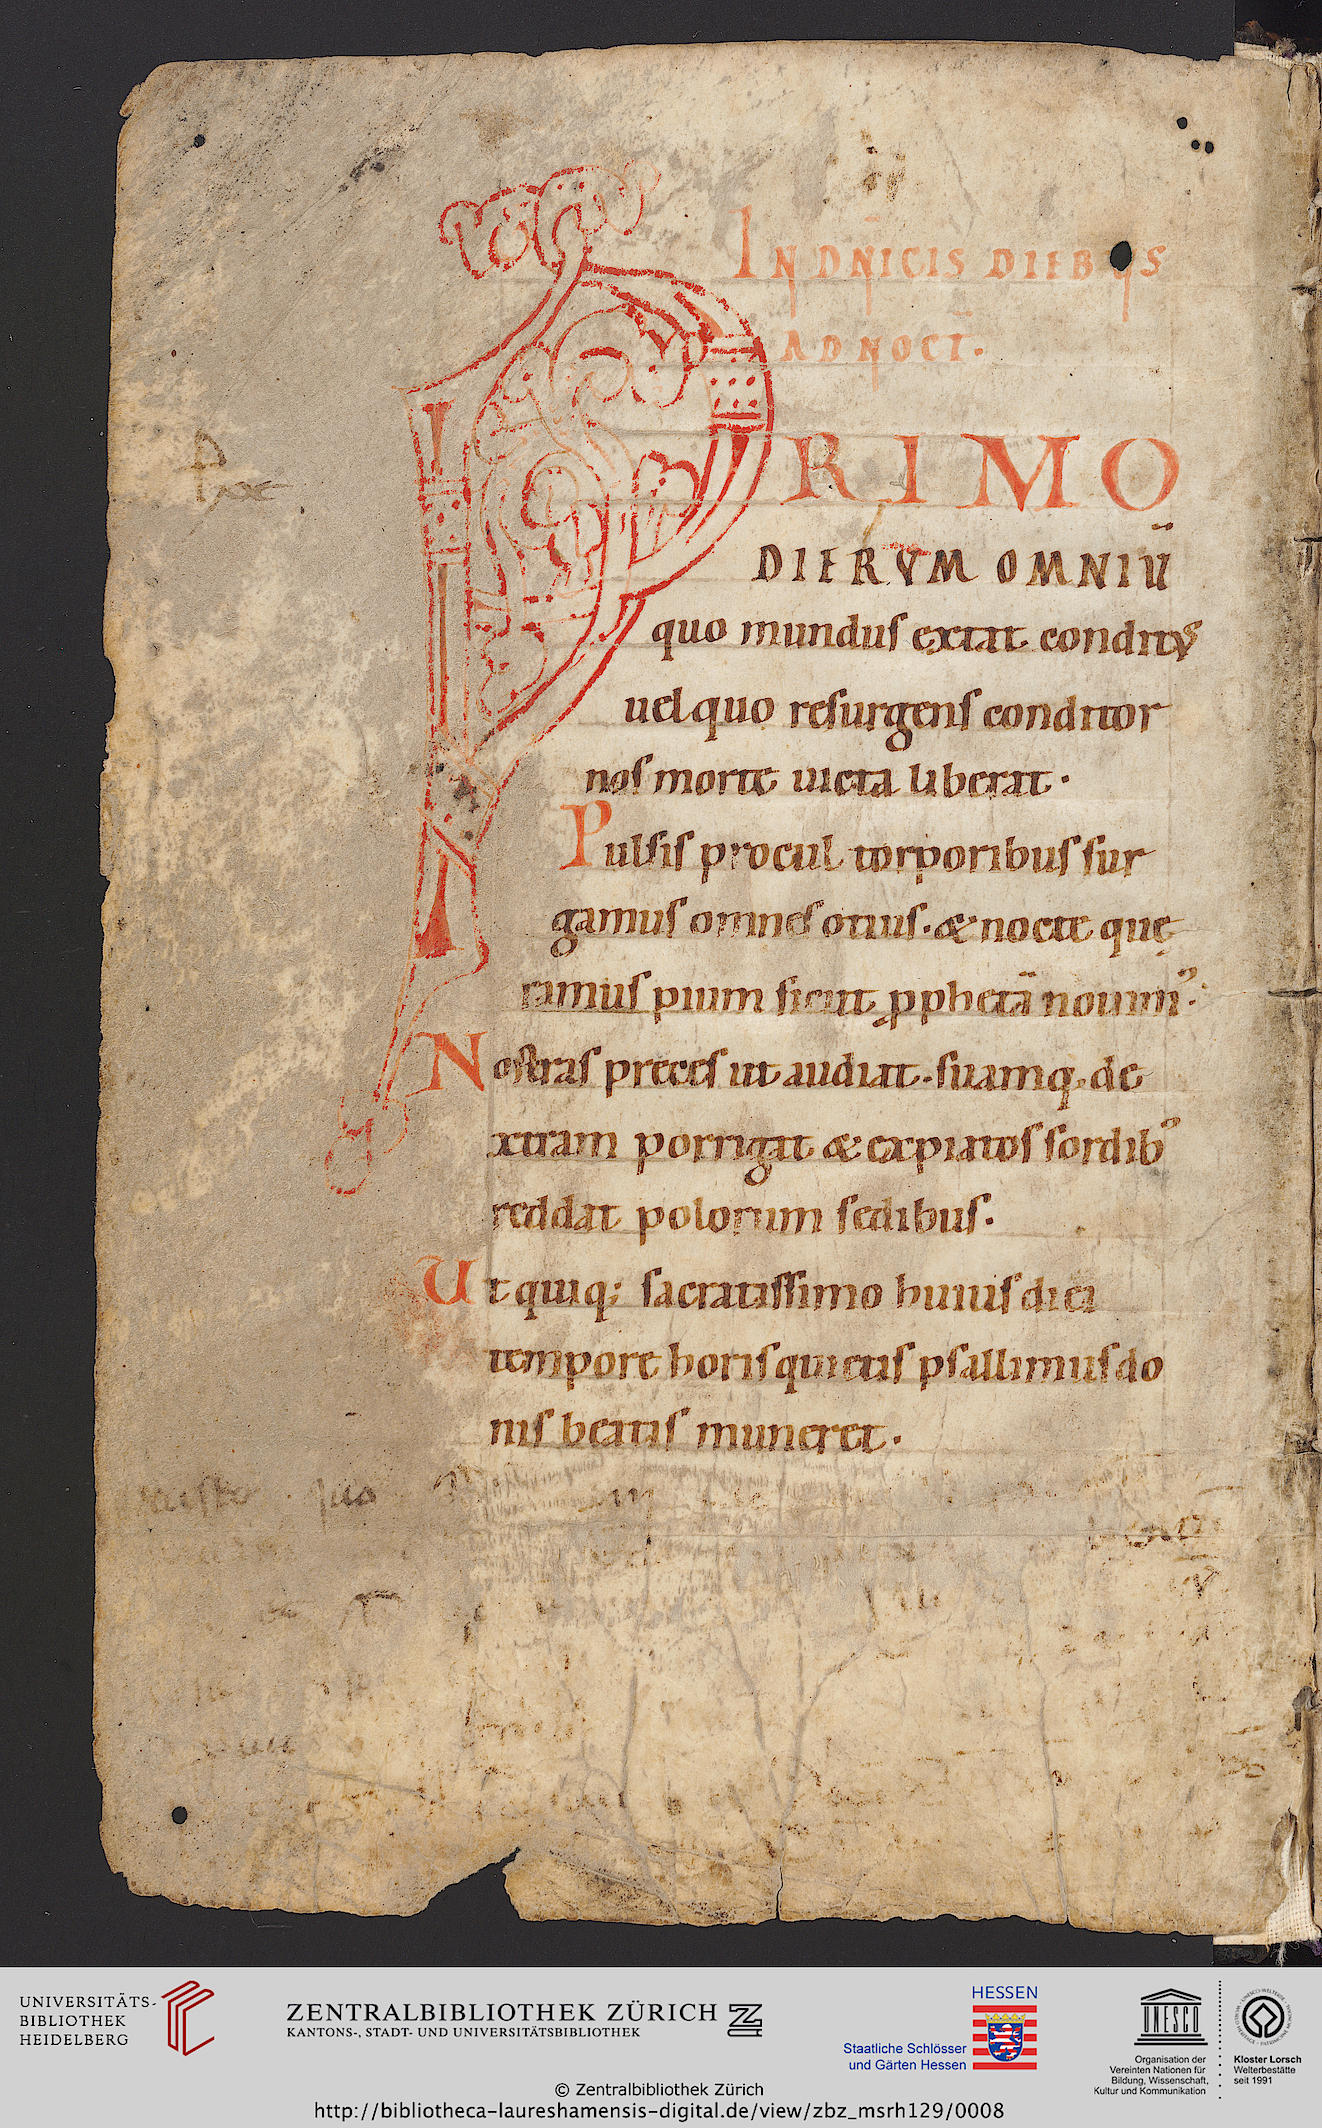 IN DNICIS DIEBUS
AD NOCT.
PRIMO
DIERVM OMNIŪ
quo mundus extat conditus
uel quo resurgens conditor
nos morte uicta liberat.
Pulsis procul torporibus sur
gamus omnes otius. & nocte quę
ramus pium sicut pphetā nouim᾿.
Nostras preces ut audiat. suamq. de
xtram porrigat & expiatos sordib᾿
reddat polorum sedibus.
Ut quiq; sacratissimo huius diei
tempore horis quietis psallimus do
nis beatis muneret.
UNIVERSITÄTS-
BIBLIOTHEK
HEIDELBERG
ZENTRALBIBLIOTHEK ZÜRICH
KANTONS-, STADT- UND UNIVERSITÄTSBIBLIOTHEK
HESSEN
Staatliche Schlösser
und Gärten Hessen
UNESCO
Organisation der
Vereinten Nationen für
Bildung, Wissenschaft,
Kultur und Kommunikation
Kloster Lorsch
Welterbestätte
seit 1991
© Zentralbibliothek Zürich
http://bibliotheca-laureshamensis-digital.de/view/zbz_msrh129/0008